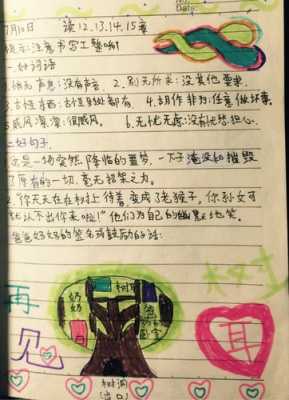 7月10日 读12.13.14.15章
提示:注意书写工整哦!
一.好词语
1.悄无声息:没有声音 2.别无所求:没其他要求
3.古怪 4.胡作非为:任意做坏事
5.威风凛凛:很威风。 6.无忧无虑:没有忧愁担心。
二.好句子
1.这是一场突然降临的噩梦,一下子淹没和摧毁
了原有的一切,毫无招架之力。
2."你天天在在树上待着,变成了老猴子,你孙女可
就认不出你来啦!"他们为自己的幽默地笑。
爸爸妈妈的签名或鼓励的话:
再见
树
耳
奶奶
树
卧室
树洞
(出口)